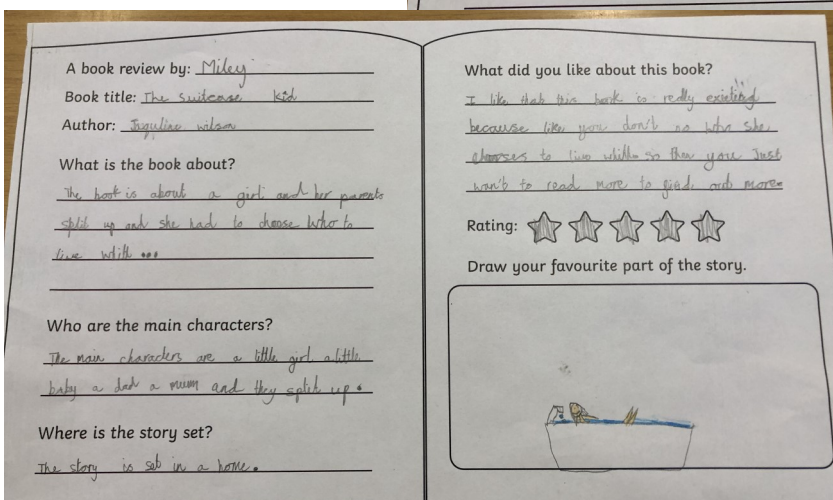 A book review by: Miley
Book title: The suitcase kid
Author: Jaquline wilson
What is the book about?
The book is about a girl and her parents
split up and she had to choose who to
live whith ...
Who are the main characters?
The main characters are a little girl a little
baby a dad a mum and they split up.
Where is the story set?
The story is set in a home.
What did you like about this book?
I like that this book is really
because like you don't no who she
chooses to live whith so then you Just
wan't to read more to find out more
Rating:
Draw your favourite part of the story.